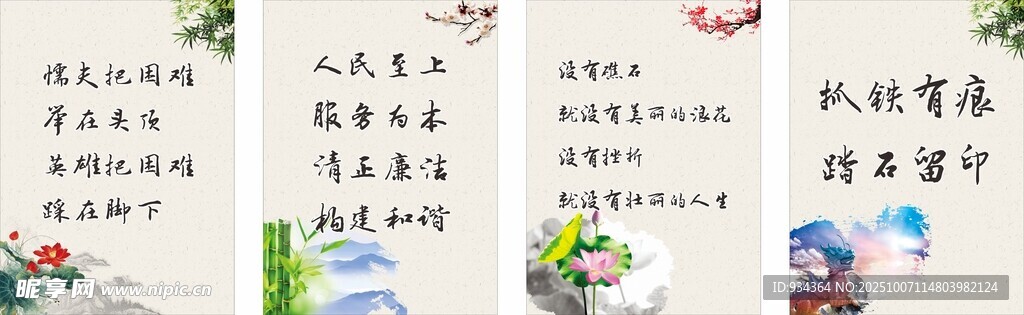 懦夫把困难
举在头顶
英雄把困难
踩在脚下
人民至上
服务为本
清正廉洁
构建和谐
没有礁石
就没有美丽的浪花
没有挫折
就没有壮丽的人生
抓铁有痕
踏石留印
昵享网 www.nipic.cn
ID:934364 NO:20251007114803982124